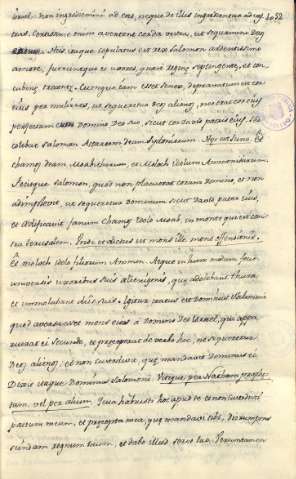 israel. non ingrediemini ad eas, neque de illis ingredientur ad ves
tras. Certissime enim avertent corda vestra, ut sequamini deos
earum. His itaque copulatus est rex Salomon ardentissimo
amore, fueruntque ei uxores quasi reginae septingentae, et con
cubinae trecentae. Cumque iam esset senex, depravatum est cor
eius per mulieres, ut sequeretur deos alienos, nec erat cor eius
perfectum cum Domino Deo suo sicut cor David patris eius. sed
colebat Salomon Astartem deam Sydoniorum. Et
Chamos deum Moabitarum, et Moloch idolum Ammonitarum.
Fecitque Salomon, quod non placuerat coram Domino, et non
adimplevit, ut sequeretur dominum sicut David pater eius,
et aedificavit fanum Chamos idolo Moab, in monte qui est con
tra Jerusalem. mons offensionis.
Et Moloch idolo filiorum Ammon. Atque in hunc modum fecit
universis uxoribus suis alienigenis, quae adolebant thura
et immolabant diis suis. Igitur iratus est Dominus Salomoni
quod aversa esset mens eius a Domino Deo Israel, qui appa
ruerat ei secundo, et praeceperat de verbo hoc, ne sequeretur
Deos alienos, et non custodivit, quae mandavit dominus ei.
Dixit itaque Dominus Salomoni. Utique per prophe
tam, vel per alium. Quia habuisti hoc apud te et non custodisti
pactum meum, et praecepta mea, quae mandavi tibi, disrumpens
scindam regnum tuum, et dabo illud servo tuo. Verumtamen